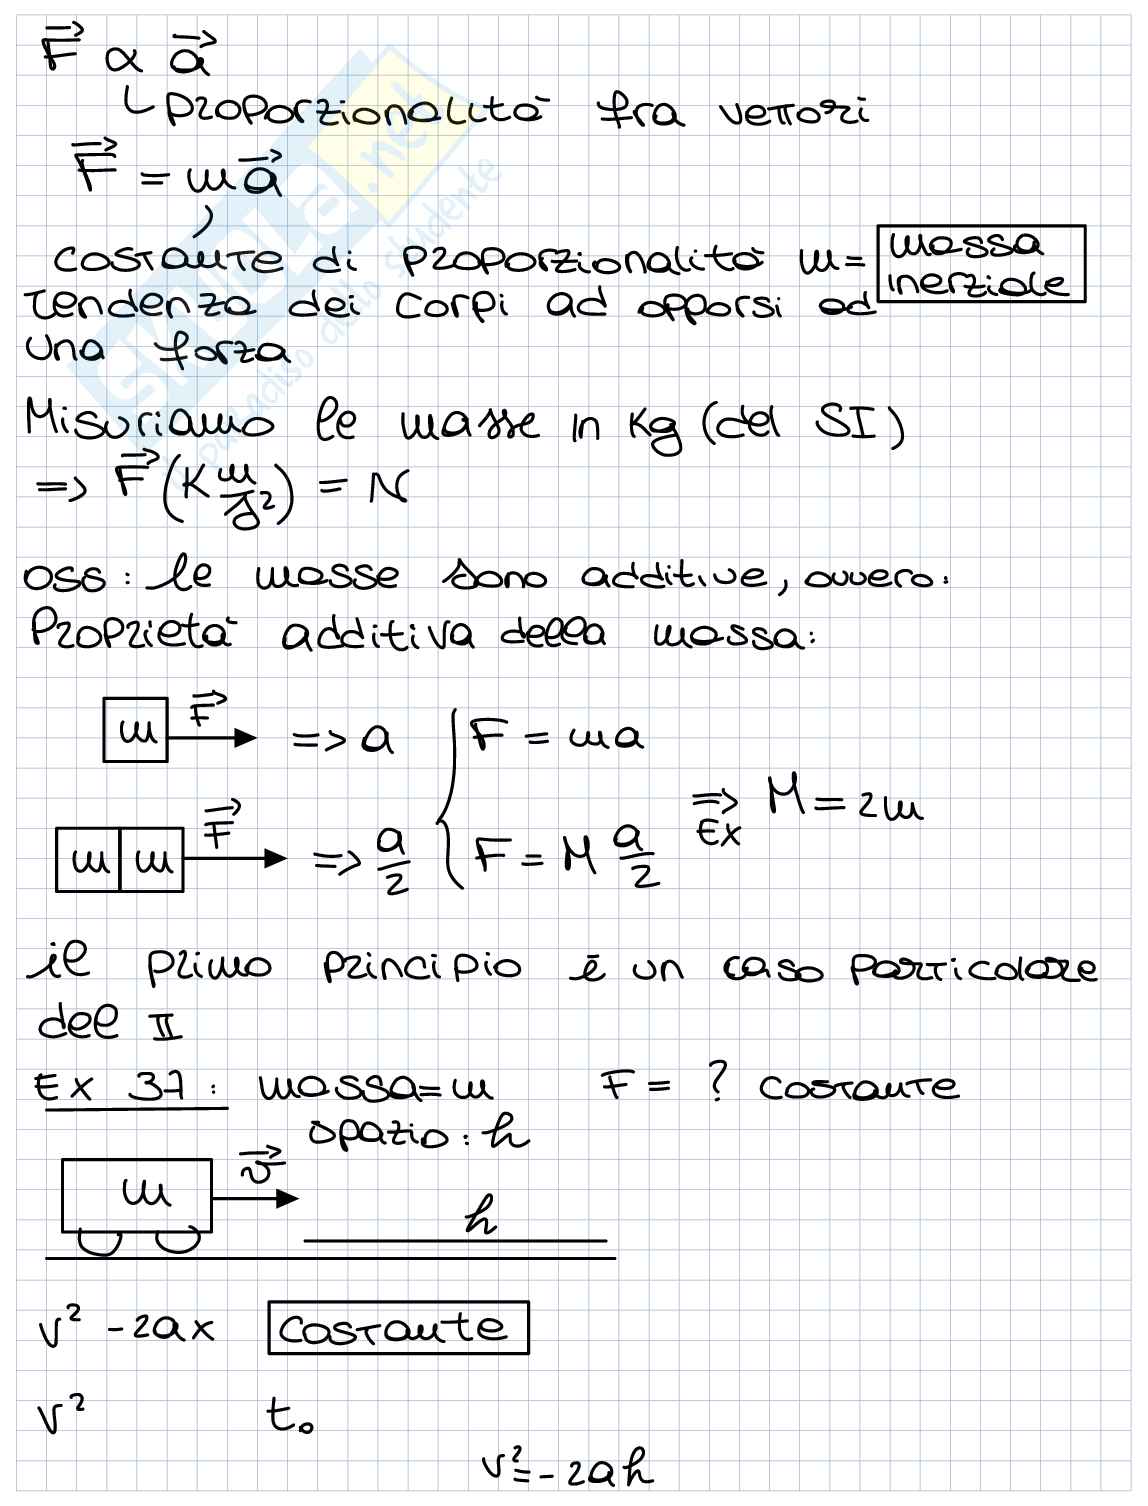 F⃗ ∝ a⃗
↳ proporzionalità fra vettori
F⃗ = m a⃗
costante di proporzionalità m = massa inerziale
tendenza dei corpi ad opporsi ad
una forza
Misuriamo le masse in Kg (del SI)
=> F⃗ (K m/s²) = N
oss: le masse sono additive, ovvero:
Proprietà additiva della massa:
m F⃗ => a { F = ma
m m F⃗ => a/2 { F = M a/2 => Ex M = 2m
il primo principio è un caso particolare
del II
Ex 37: massa = m F = ? costante
spazio: h
m v⃗ h
v² - 2ax costante
v² t₀
v² = -2ah
skuola.net
paradiso dello studente